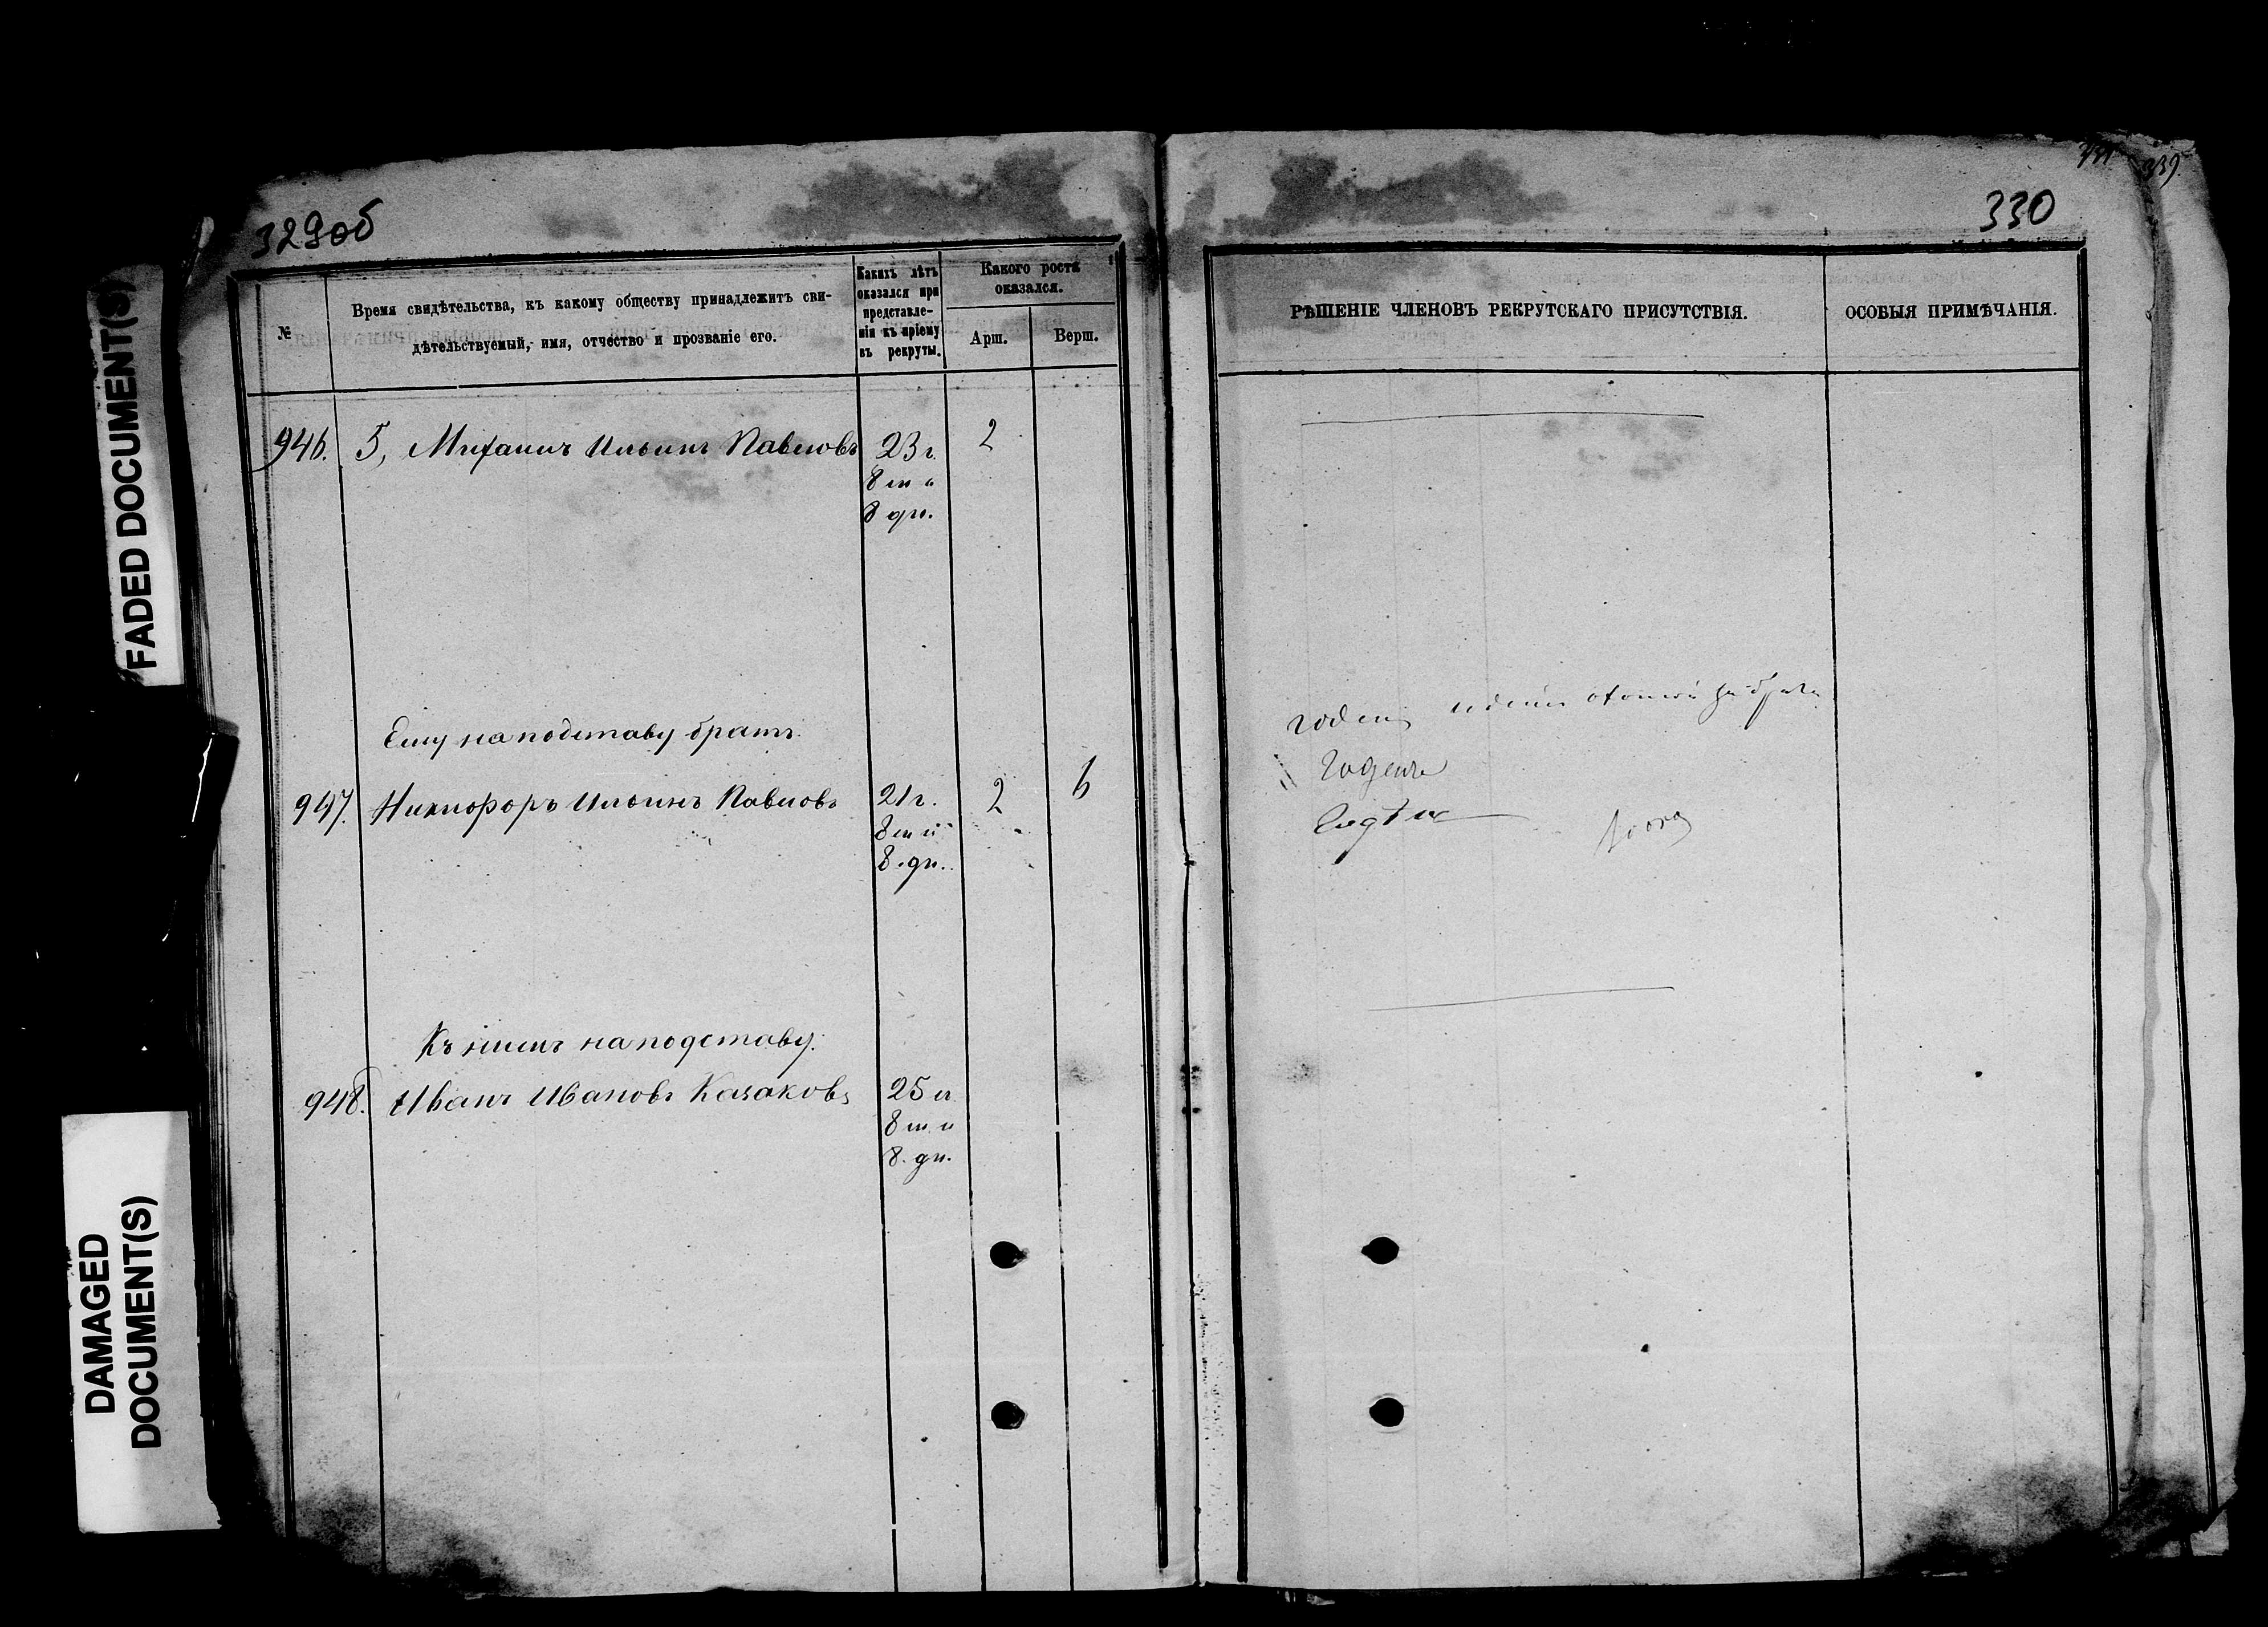 329об
№
Время свидѣтельства, къ какому обществу принадлежитъ сви-
дѣтельствуемый, имя, отчество и прозваніе его.
Какихъ лѣтъ
оказался при
представле-
ніи къ пріему
въ рекруты.
Какого роста
оказался.
Арш.
Верш.
946. 5, Михаилъ Ильинъ Павловъ 23 г. 2
8 м и
8 дн.
Ему на подставу братъ
947. Никифоръ Ильинъ Павловъ 21 г. 2 6
8 м и
8. дн.
Къ нимъ на подставу.
948. Иванъ Ивановъ Казаковъ 25 л.
8 м. и
8. дн.
330
РѢШЕНІЕ ЧЛЕНОВЪ РЕКРУТСКАГО ПРИСУТСТВІЯ.
ОСОБЫЯ ПРИМѢЧАНІЯ.
годенъ идетъ охотой за брата
Годенъ
Годенъ
FADED DOCUMENT(S)
DAMAGED
DOCUMENT(S)